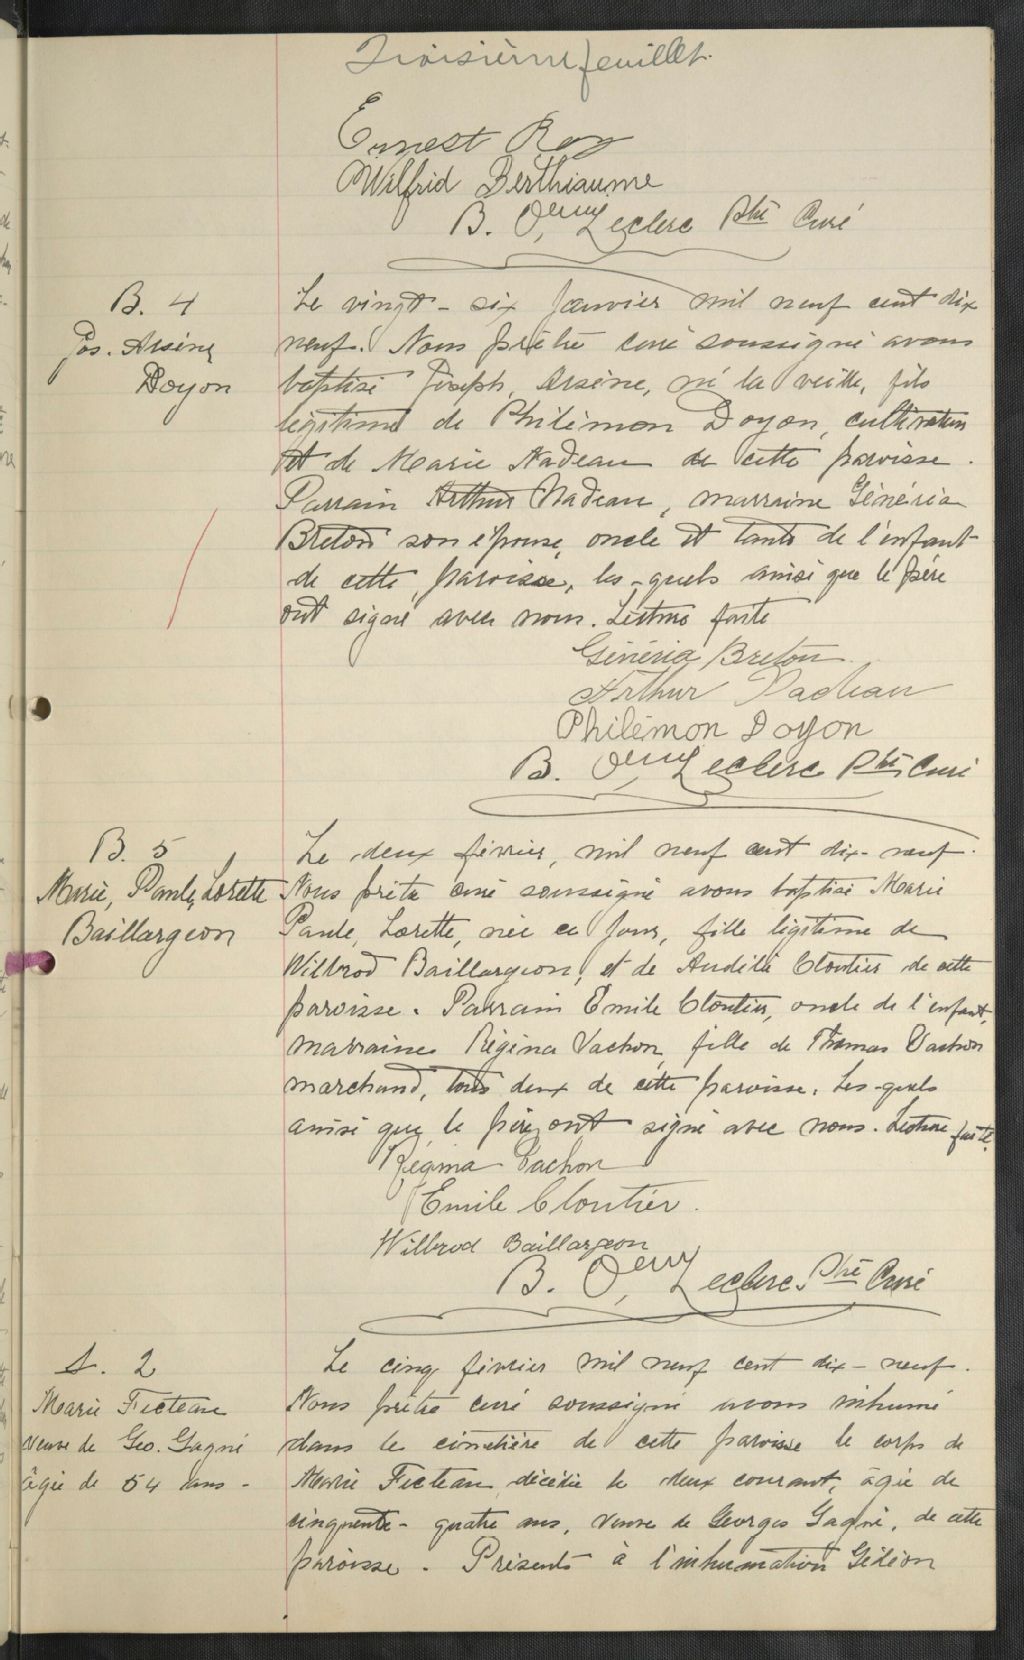 Troisième feuillet.
Ernest Roy
Wilfrid Berthiaume
B. Leclerc Ptre Curé
B. 4
Jos. Arsène
Doyon
Le vingt-six janvier mil neuf cent dix
neuf. Nous prêtre curé soussigné avons
baptisé Joseph, Arsène, né la veille, fils
légitime de Philémon Doyon, cultivateur
et de Marie Nadeau de cette paroisse.
Parrain Arthur Nadeau, marraine Généria
Breton son épouse, oncle et tante de l'enfant
de cette paroisse, les-quels ainsi que le père
ont signé avec nous. Lecture faite
Généria Breton
Arthur Nadeau
Philémon Doyon
B. Leclerc Ptre Curé
B. 5
Marie, Paule, Lorette
Baillargeon
Le deux février, mil neuf cent dix-neuf.
Nous prêtre curé soussigné avons baptisé Marie
Paule, Lorette, née ce jour, fille légitime de
Wilbrod Baillargeon, et de Cloutier de cette
paroisse. Parrain Emile Cloutier, oncle de l'enfant,
marraine Régina Vachon fille de Thomas Vachon
marchand, tous deux de cette paroisse. Les-quels
ainsi que le père ont signé avec nous. Lecture faite.
Régina Vachon
Emile Cloutier.
Wilbrod Baillargeon
B. Leclerc Ptre Curé
S. 2
Marie Fecteau
veuve de Geo. Gagné
âgée de 54 ans -
Le cinq février mil neuf cent dix-neuf.
Nous prêtre curé soussigné avons inhumé
dans le cimetière de cette paroisse le corps de
Marie Fecteau, décédée le deux courant, âgée de
cinquante-quatre ans, veuve de Georges Gagné, de cette
paroisse. Présents à l'inhumation Gédéon